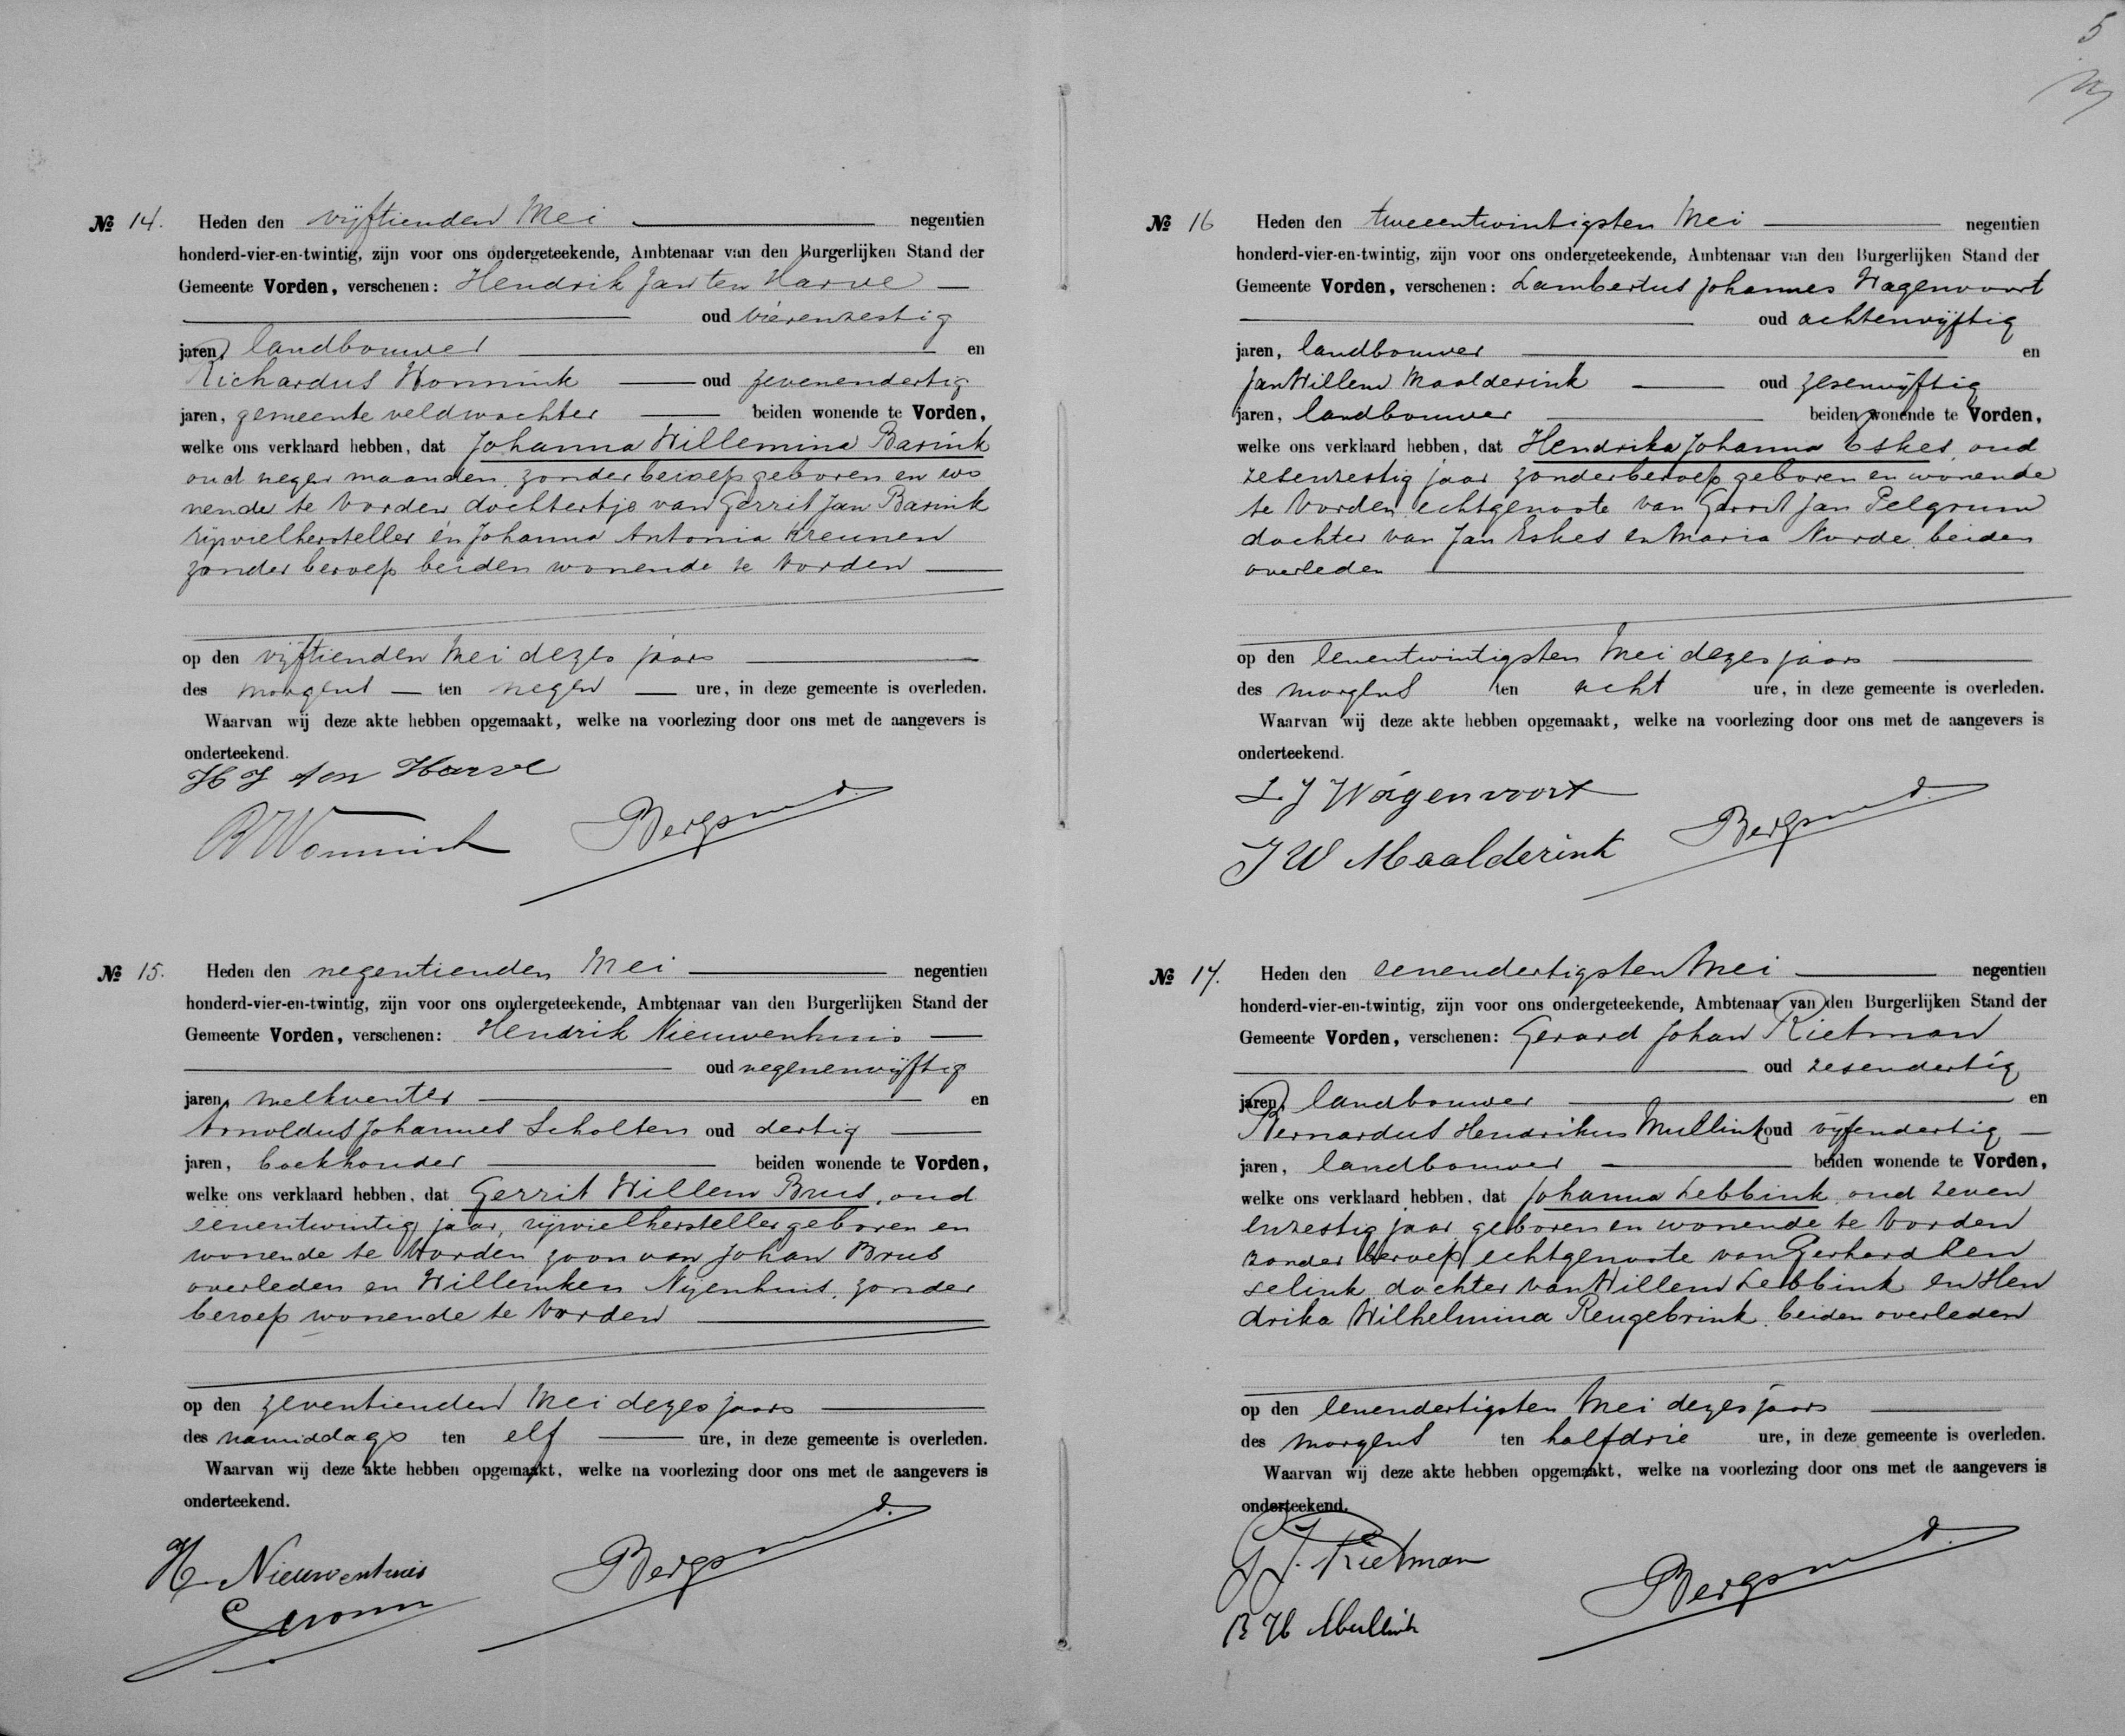 5
№ 14. Heden den vijftienden Mei negentien
honderd-vier-en-twintig, zijn voor ons ondergeteekende, Ambtenaar van den Burgerlijken Stand der
Gemeente Vorden, verschenen: Hendrik Jan ten Harve
oud vierenzestig
jaren, landbouwer en
Richardus Wonnink oud zevenendertig
jaren, gemeente veldwachter beiden wonende te Vorden,
welke ons verklaard hebben, dat Johanna Willemina Barink
oud negen maanden, zonder beroep geboren en wo
nende te Vorden dochtertje van Gerrit Jan Barink
rijwielhersteller en Johanna Antonia Kreunen
zonder beroep beiden wonende te Vorden
op den vijftienden Mei dezes jaars
des morgens ten negen ure, in deze gemeente is overleden.
Waarvan wij deze akte hebben opgemaakt, welke na voorlezing door ons met de aangevers is
onderteekend.
H J ten Harve
R Wonnink Bergsma
№ 15. Heden den negentienden Mei negentien
honderd-vier-en-twintig, zijn voor ons ondergeteekende, Ambtenaar van den Burgerlijken Stand der
Gemeente Vorden, verschenen: Hendrik Nieuwenhuis
oud negenenvijftig
jaren, melkventer en
Arnoldus Johannes Scholten oud dertig
jaren, boekhouder beiden wonende te Vorden,
welke ons verklaard hebben, dat Gerrit Willem Brus, oud
eenentwintig jaar, rijwielhersteller geboren en
wonende te Vorden zoon van Johan Brus
overleden en Willemken Nijenhuis, zonder
beroep wonende te Vorden
op den zeventienden Mei dezes jaars
des namiddags ten elf ure, in deze gemeente is overleden.
Waarvan wij deze akte hebben opgemaakt, welke na voorlezing door ons met de aangevers is
onderteekend.
H Nieuwenhuis Bergsma
№ 16 Heden den tweeentwintigsten Mei negentien
honderd-vier-en-twintig, zijn voor ons ondergeteekende, Ambtenaar van den Burgerlijken Stand der
Gemeente Vorden, verschenen: Lambertus Johannes Wagenvoort
oud achtenvijftig
jaren, landbouwer en
Jan Willem Maalderink oud zesenvijftig
jaren, landbouwer beiden wonende te Vorden,
welke ons verklaard hebben, dat Hendrika Johanna Eskes, oud
zesenzestig jaar zonder beroep geboren en wonende
te Vorden echtgenoote van Gerrit Jan Pelgrum
dochter van Jan Eskes en Maria Norde, beiden
overleden
op den eenentwintigsten Mei dezes jaars
des morgens ten acht ure, in deze gemeente is overleden.
Waarvan wij deze akte hebben opgemaakt, welke na voorlezing door ons met de aangevers is
onderteekend.
L J Wagenvoort
J W Maalderink Bergsma
№ 17. Heden den eenendertigsten Mei negentien
honderd-vier-en-twintig, zijn voor ons ondergeteekende, Ambtenaar van den Burgerlijken Stand der
Gemeente Vorden, verschenen: Gerard Johan Rietman
oud zesendertig
jaren, landbouwer en
Bernardus Hendrikus Mullink oud vijfendertig
jaren, landbouwer beiden wonende te Vorden,
welke ons verklaard hebben, dat Johanna Lebbink oud zeven
enzestig jaar geboren en wonende te Vorden
zonder beroep, echtgenoote van Gerhard Len
selink dochter van Willem Lebbink en Hen
drika Wilhelmina Reugebrink, beiden overleden
op den eenendertigsten Mei dezes jaars
des morgens ten halfdrie ure, in deze gemeente is overleden.
Waarvan wij deze akte hebben opgemaakt, welke na voorlezing door ons met de aangevers is
onderteekend.
G J. Rietman
B H Mullink Bergsma